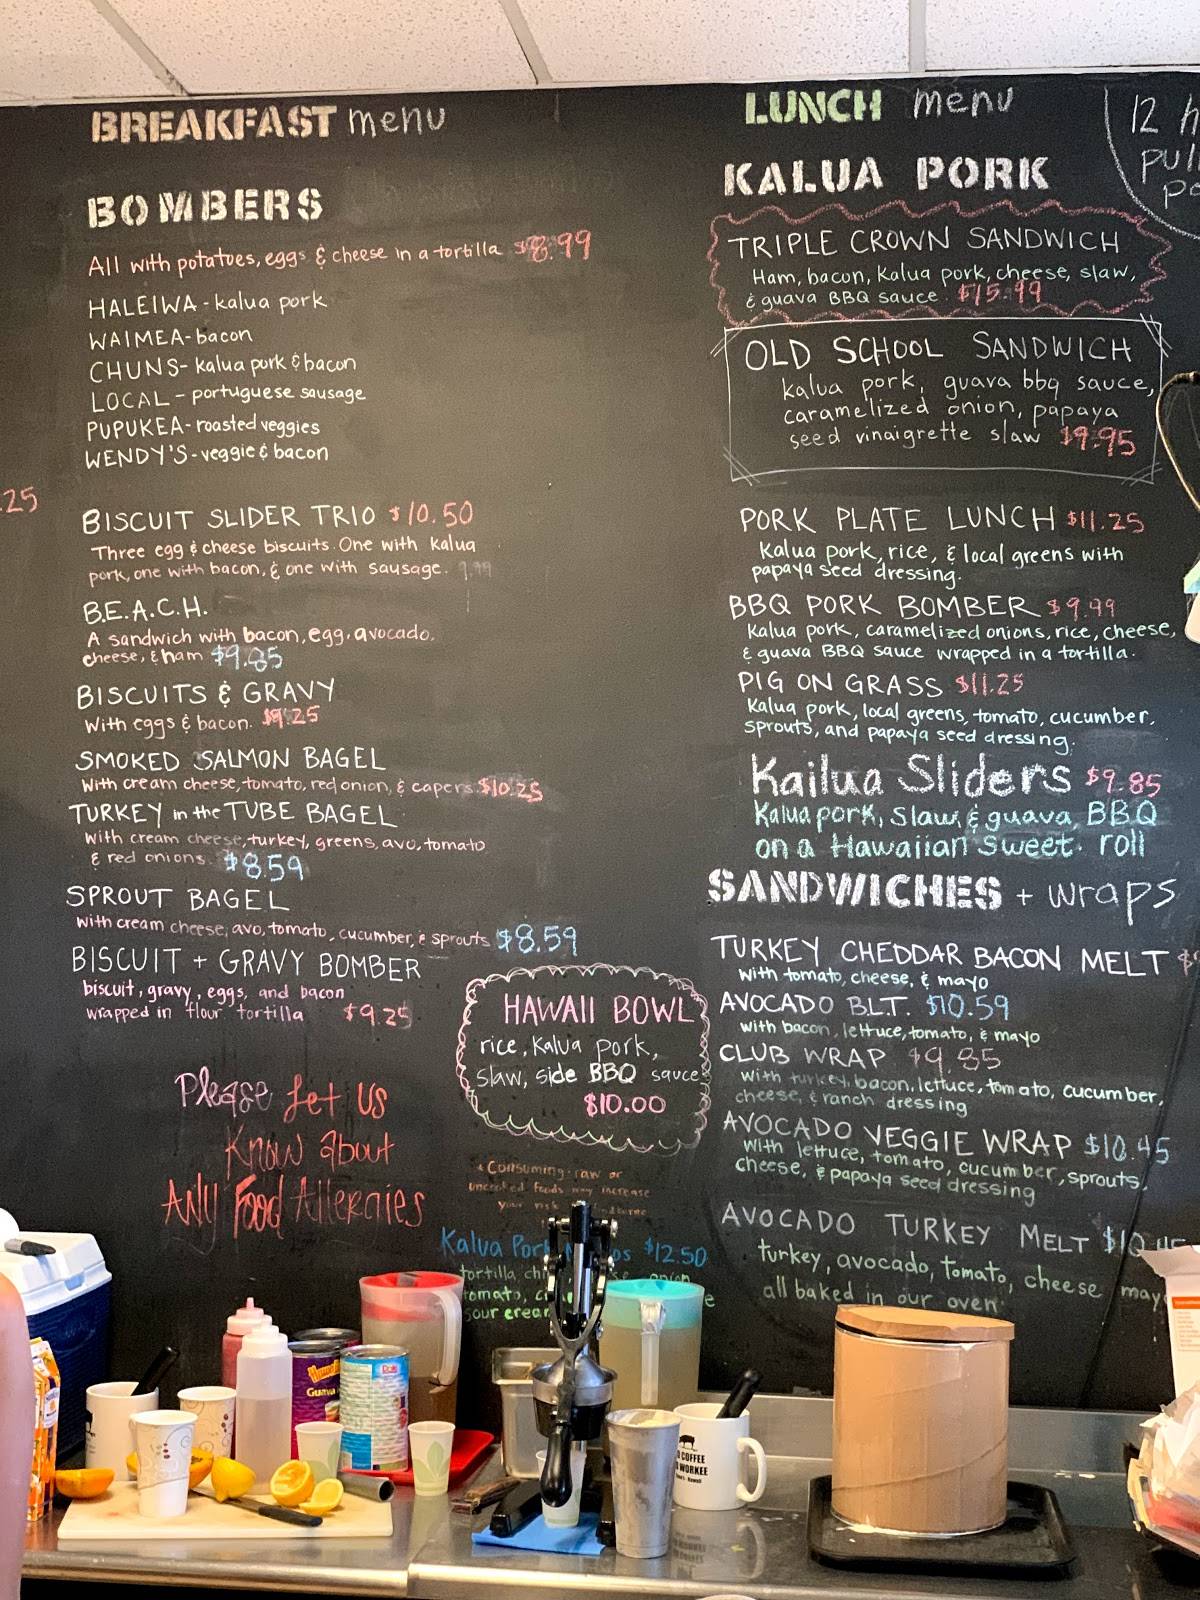 BREAKFAST menu
BOMBERS
All with potatoes, eggs & cheese in a tortilla $8.99
HALEIWA - kalua pork
WAIMEA - bacon
CHUNS - kalua pork & bacon
LOCAL - portuguese sausage
PUPUKEA - roasted veggies
WENDY'S - veggie & bacon
.25
BISCUIT SLIDER TRIO $10.50
Three egg & cheese biscuits. One with kalua
pork, one with bacon, & one with sausage. 9.99
B.E.A.C.H.
A sandwich with bacon, egg, avocado,
cheese, & ham $9.85
BISCUITS & GRAVY
With eggs & bacon. $9.25
SMOKED SALMON BAGEL
With cream cheese, tomato, red onion, & capers $10.25
TURKEY in the TUBE BAGEL
With cream cheese, turkey, greens, avo, tomato
& red onions. $8.59
SPROUT BAGEL
With cream cheese, avo, tomato, cucumber, & sprouts $8.59
BISCUIT + GRAVY BOMBER
biscuit, gravy, eggs, and bacon
wrapped in flour tortilla $9.25
Please Let Us
Know About
Any Food Allergies
HAWAII BOWL
rice, Kalua pork,
slaw, side BBQ sauce
$10.00
* Consuming raw or
uncooked foods may increase
your risk
Kalua Pork $12.50
tortilla onion
tomato,
sour cream
LUNCH menu
12 h
pul
po
KALUA PORK
TRIPLE CROWN SANDWICH
Ham, bacon, kalua pork, cheese, slaw,
& guava BBQ sauce $15.99
OLD SCHOOL SANDWICH
kalua pork, guava bbq sauce,
caramelized onion, papaya
seed vinaigrette slaw $9.95
PORK PLATE LUNCH $11.25
Kalua pork, rice, & local greens with
papaya seed dressing.
BBQ PORK BOMBER $9.99
Kalua pork, caramelized onions, rice, cheese,
& guava BBQ sauce wrapped in a tortilla.
PIG ON GRASS $11.25
Kalua pork, local greens, tomato, cucumber,
sprouts, and papaya seed dressing.
Kailua Sliders $9.85
Kalua pork, slaw, & guava BBQ
on a Hawaiian sweet roll
SANDWICHES + wraps
TURKEY CHEDDAR BACON MELT $
with tomato, cheese, & mayo
AVOCADO B.L.T. $10.59
with bacon, lettuce, tomato, & mayo
CLUB WRAP $9.85
with turkey, bacon, lettuce, tomato, cucumber,
cheese, & ranch dressing
AVOCADO VEGGIE WRAP $10.45
with lettuce, tomato, cucumber, sprouts,
cheese, & papaya seed dressing
AVOCADO TURKEY MELT $10.45
turkey, avocado, tomato, cheese mayo
all baked in our oven
Guava
Dole
COFFEE
WORKEE